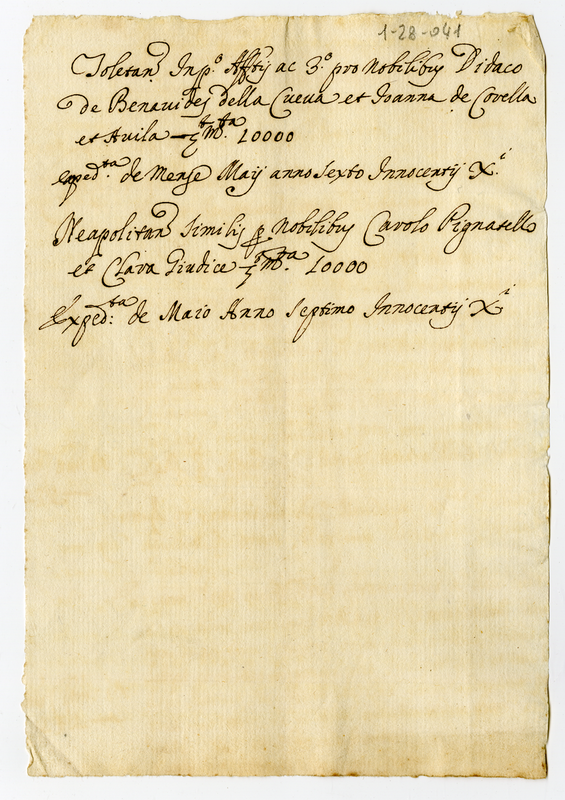 1-28-041
Toletan. In p.º Aff.tis ac 3.º pro Nobilibus Didaco
de Benavides della Cueva et Joanna de Corella
et Avila m.ta 10000
exped.ta de Mense Maij anno Sexto Innocentij X.i
Neapolitan. Similis p Nobilibus Carolo Pignatello
et Clara Giudice m.ta 10000
Exped.ta de Maio Anno Septimo Innocentij X.i